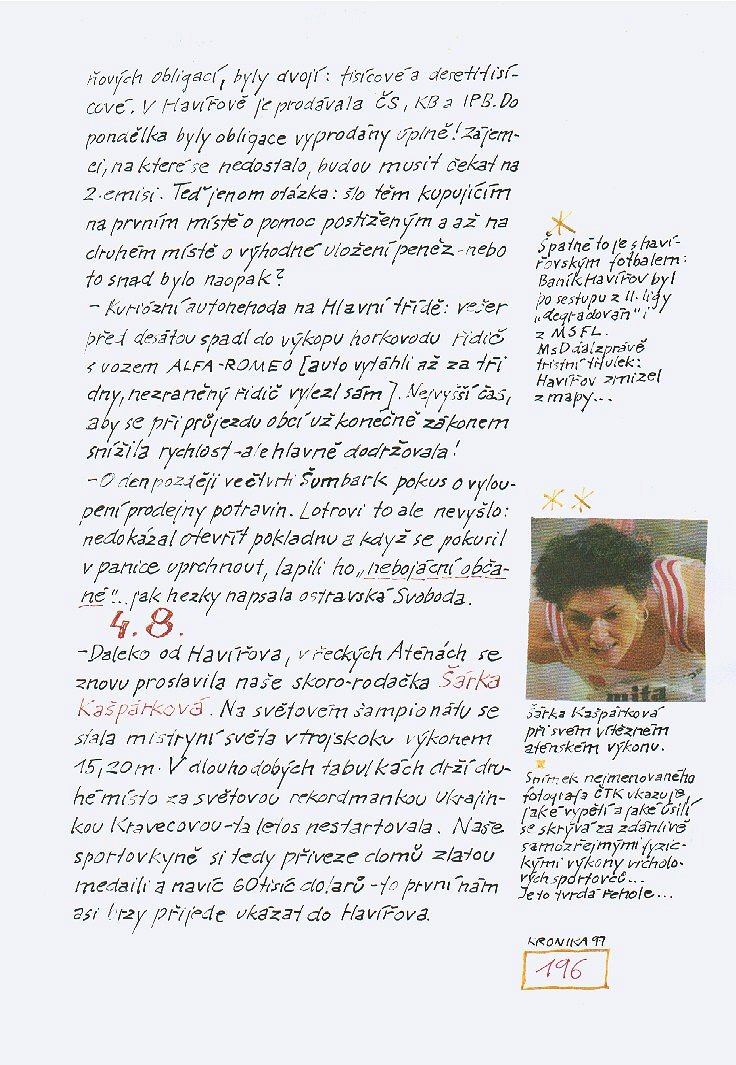 ňových obligací, byly dvojí: tisícové a desetitisí-
cové. V Havířově je prodávala ČS, KB a IPB. Do
pondělka byly obligace vyprodány úplně! Zájem-
ci, na které se nedostalo, budou musit čekat na
2. emisi. Teď jenom otázka: šlo těm kupujícím
na prvním místě o pomoc postiženým a až na
druhém místě o výhodné uložení peněz - nebo
to snad bylo naopak?
- Kuriózní autonehoda na Hlavní třídě: večer
před desátou spadl do výkopu horkovodu řidič
s vozem ALFA-ROMEO [auto vytáhli až za tři
dny, nezraněný řidič vylezl sám]. Nejvyšší čas,
aby se při průjezdu obcí už konečně zákonem
snížila rychlost - ale hlavně dodržovala!
- O den později ve čtvrti Šumbark pokus o vylou-
pení prodejny potravin. Lotrovi to ale nevyšlo:
nedokázal otevřít pokladnu a když se pokusil
v panice uprchnout, lapili ho „nebojácní obča-
né"... jak hezky napsala ostravská Svoboda.
4. 8.
- Daleko od Havířova, v řeckých Aténách se
znovu proslavila naše skoro-rodačka Šárka
Kašpárková. Na světovém šampionátu se
stala mistryní světa v trojskoku výkonem
15,20 m. V dlouhodobých tabulkách drží dru-
hé místo za světovou rekordmankou Ukrajin-
kou Kravecovou - ta letos nestartovala. Naše
sportovkyně si tedy přiveze domů zlatou
medaili a navíc 60 tisíc dolarů - to první nám
asi brzy přijede ukázat do Havířova.
*
Špatné to je s haví-
řovským fotbalem:
Baník Havířov byl
po sestupu z II. ligy
„degradován" i
z MSFL.
MsD dal zprávě
tristní titulek:
Havířov zmizel
z mapy...
* *
mita
Šárka Kašpárková
při svém vítězném
aténském výkonu.
*
Snímek nejmenovaného
fotografa ČTK ukazuje,
jaké vypětí a jaké úsilí
se skrývá za zdánlivě
samozřejmými fyzic-
kými výkony vrcholo-
vých sportovců...
Je to tvrdá řehole...
KRONIKA 97
196